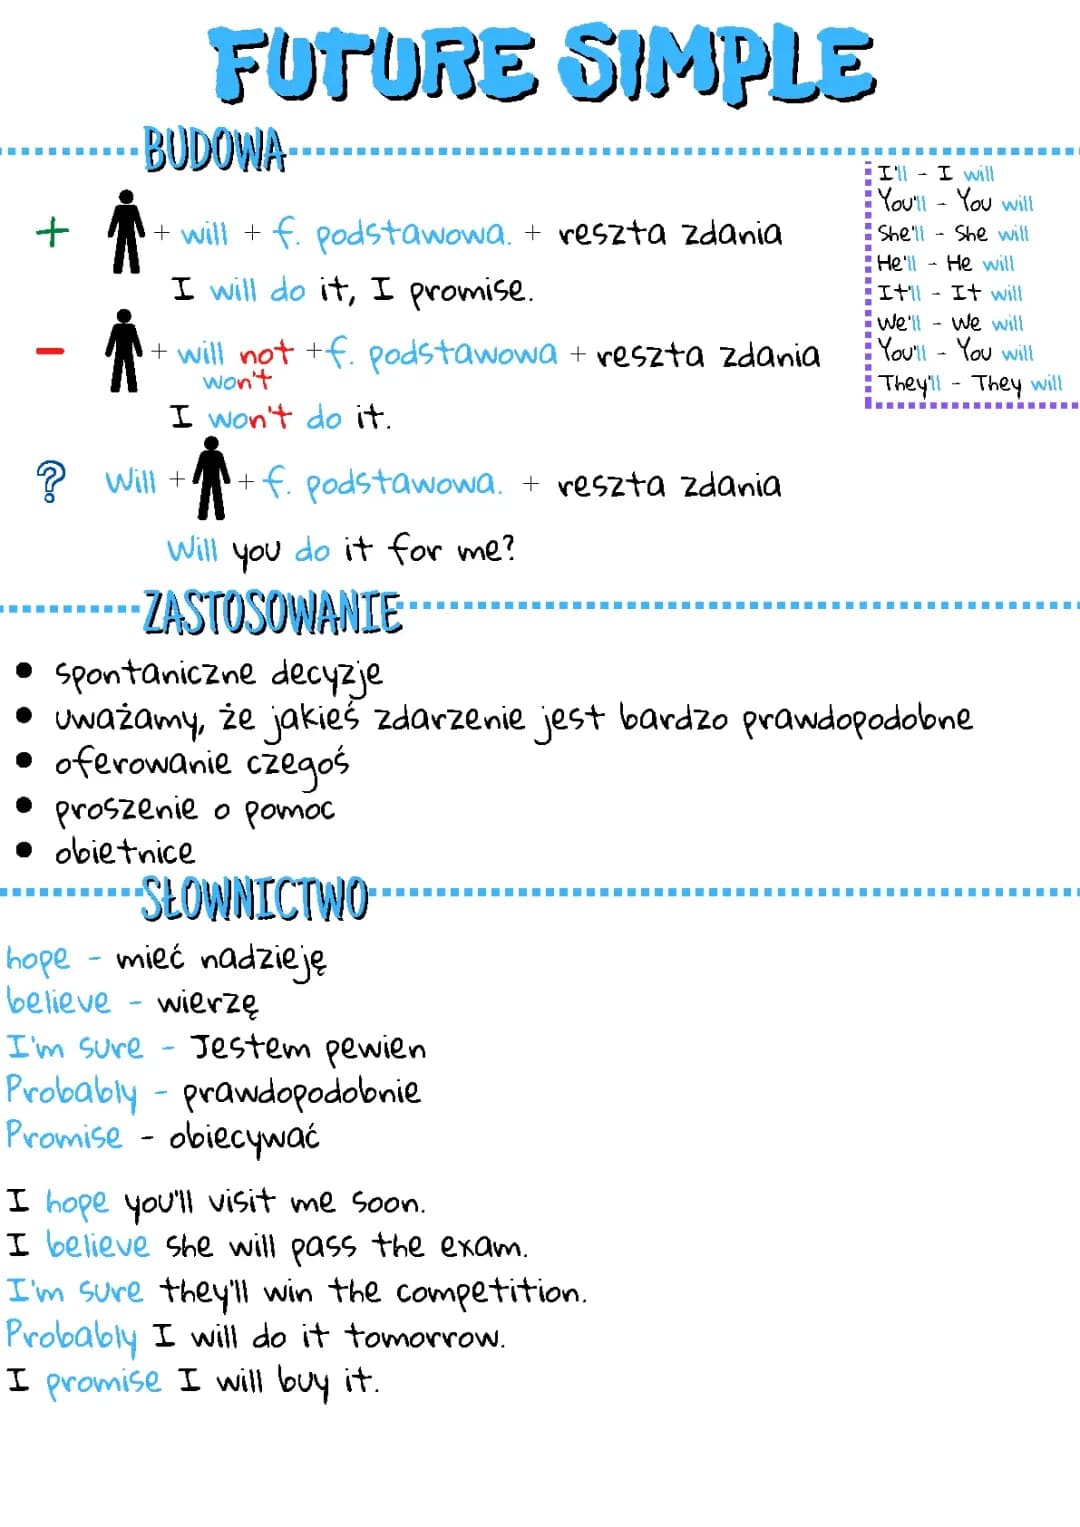 FUTURE SIMPLE
BUDOWA
I'll - I will
You'll - You will
She'll - She will
He'll - He will
It'll - It will
We'll - We will
You'll - You will
They'll - They will
+ + will + f. podstawowa. + reszta zdania
I will do it, I promise.
- + will not +f. podstawowa + reszta zdania
won't
I won't do it.
? Will + + f. podstawowa. + reszta zdania
Will you do it for me?
ZASTOSOWANIE
• spontaniczne decyzje
• uważamy, że jakieś zdarzenie jest bardzo prawdopodobne
• oferowanie czegoś
• proszenie o pomoc
• obietnice
SŁOWNICTWO
hope - mieć nadzieję
believe - wierzę
I'm sure - Jestem pewien
Probably - prawdopodobnie
Promise - obiecywać
I hope you'll visit me soon.
I believe she will pass the exam.
I'm sure they'll win the competition.
Probably I will do it tomorrow.
I promise I will buy it.